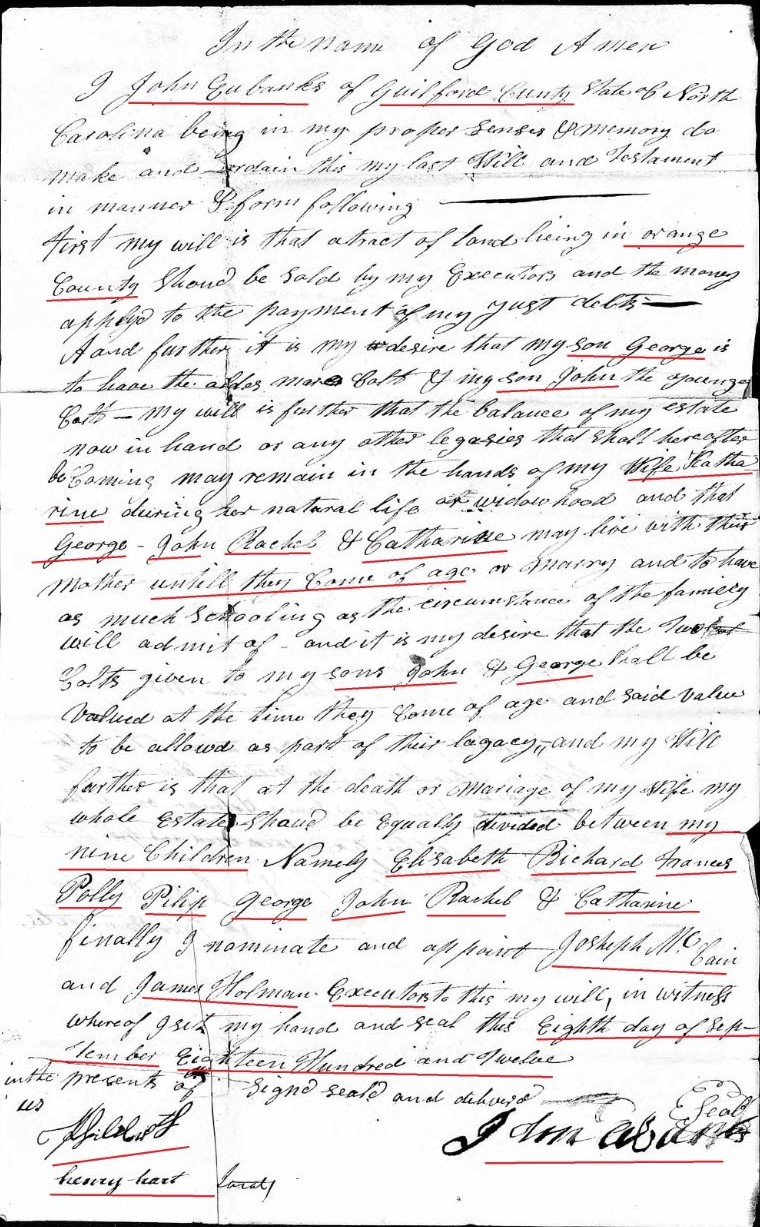 In the name of God Amen
I John Eubanks of Guilford County State of North
Carolina being in my proper Senses & memory do
make and ordain this my last Will and Testament
in manner & form following
first my will is that a tract of land lieing in orange
County Shoud be Sold by my Executors and the money
applyd to the payment of my just debts
And further it is my desire that my son George is
to have the mares Colt & my son John the younger
Colt - my will is further that the balance of my estate
now in hand or any other legasies that shall hereafter
be Coming may remain in the hands of my Wife Katha
rine during her natural life or widowhood and that
George - John Rachel & Catharine may live with their
mother untill they Come of age or marry and to have
as much Schooling as the circumstance of the family
will admit of - and it is my desire that the two
Colts given to my sons John & George shall be
Valued at the time they Come of age and said value
to be allowed as part of their legacy, and my Will
further is that at the death or mariage of my Wife my
whole Estate Shoud be Equally divided between my
nine Children Namely Elisabeth Richard Frances
Polly Pilip George John Rachel & Catharine
finally I nominate and appoint Joseph Mc Cain
and James Holman Executors to this my will, in witness
whereof I set my hand and seal this Eighth day of Sep-
tember Eighteen Hundred and Twelve
in the presents of Signd seald and deliverd
us
Seal
John
henry hart Jurat